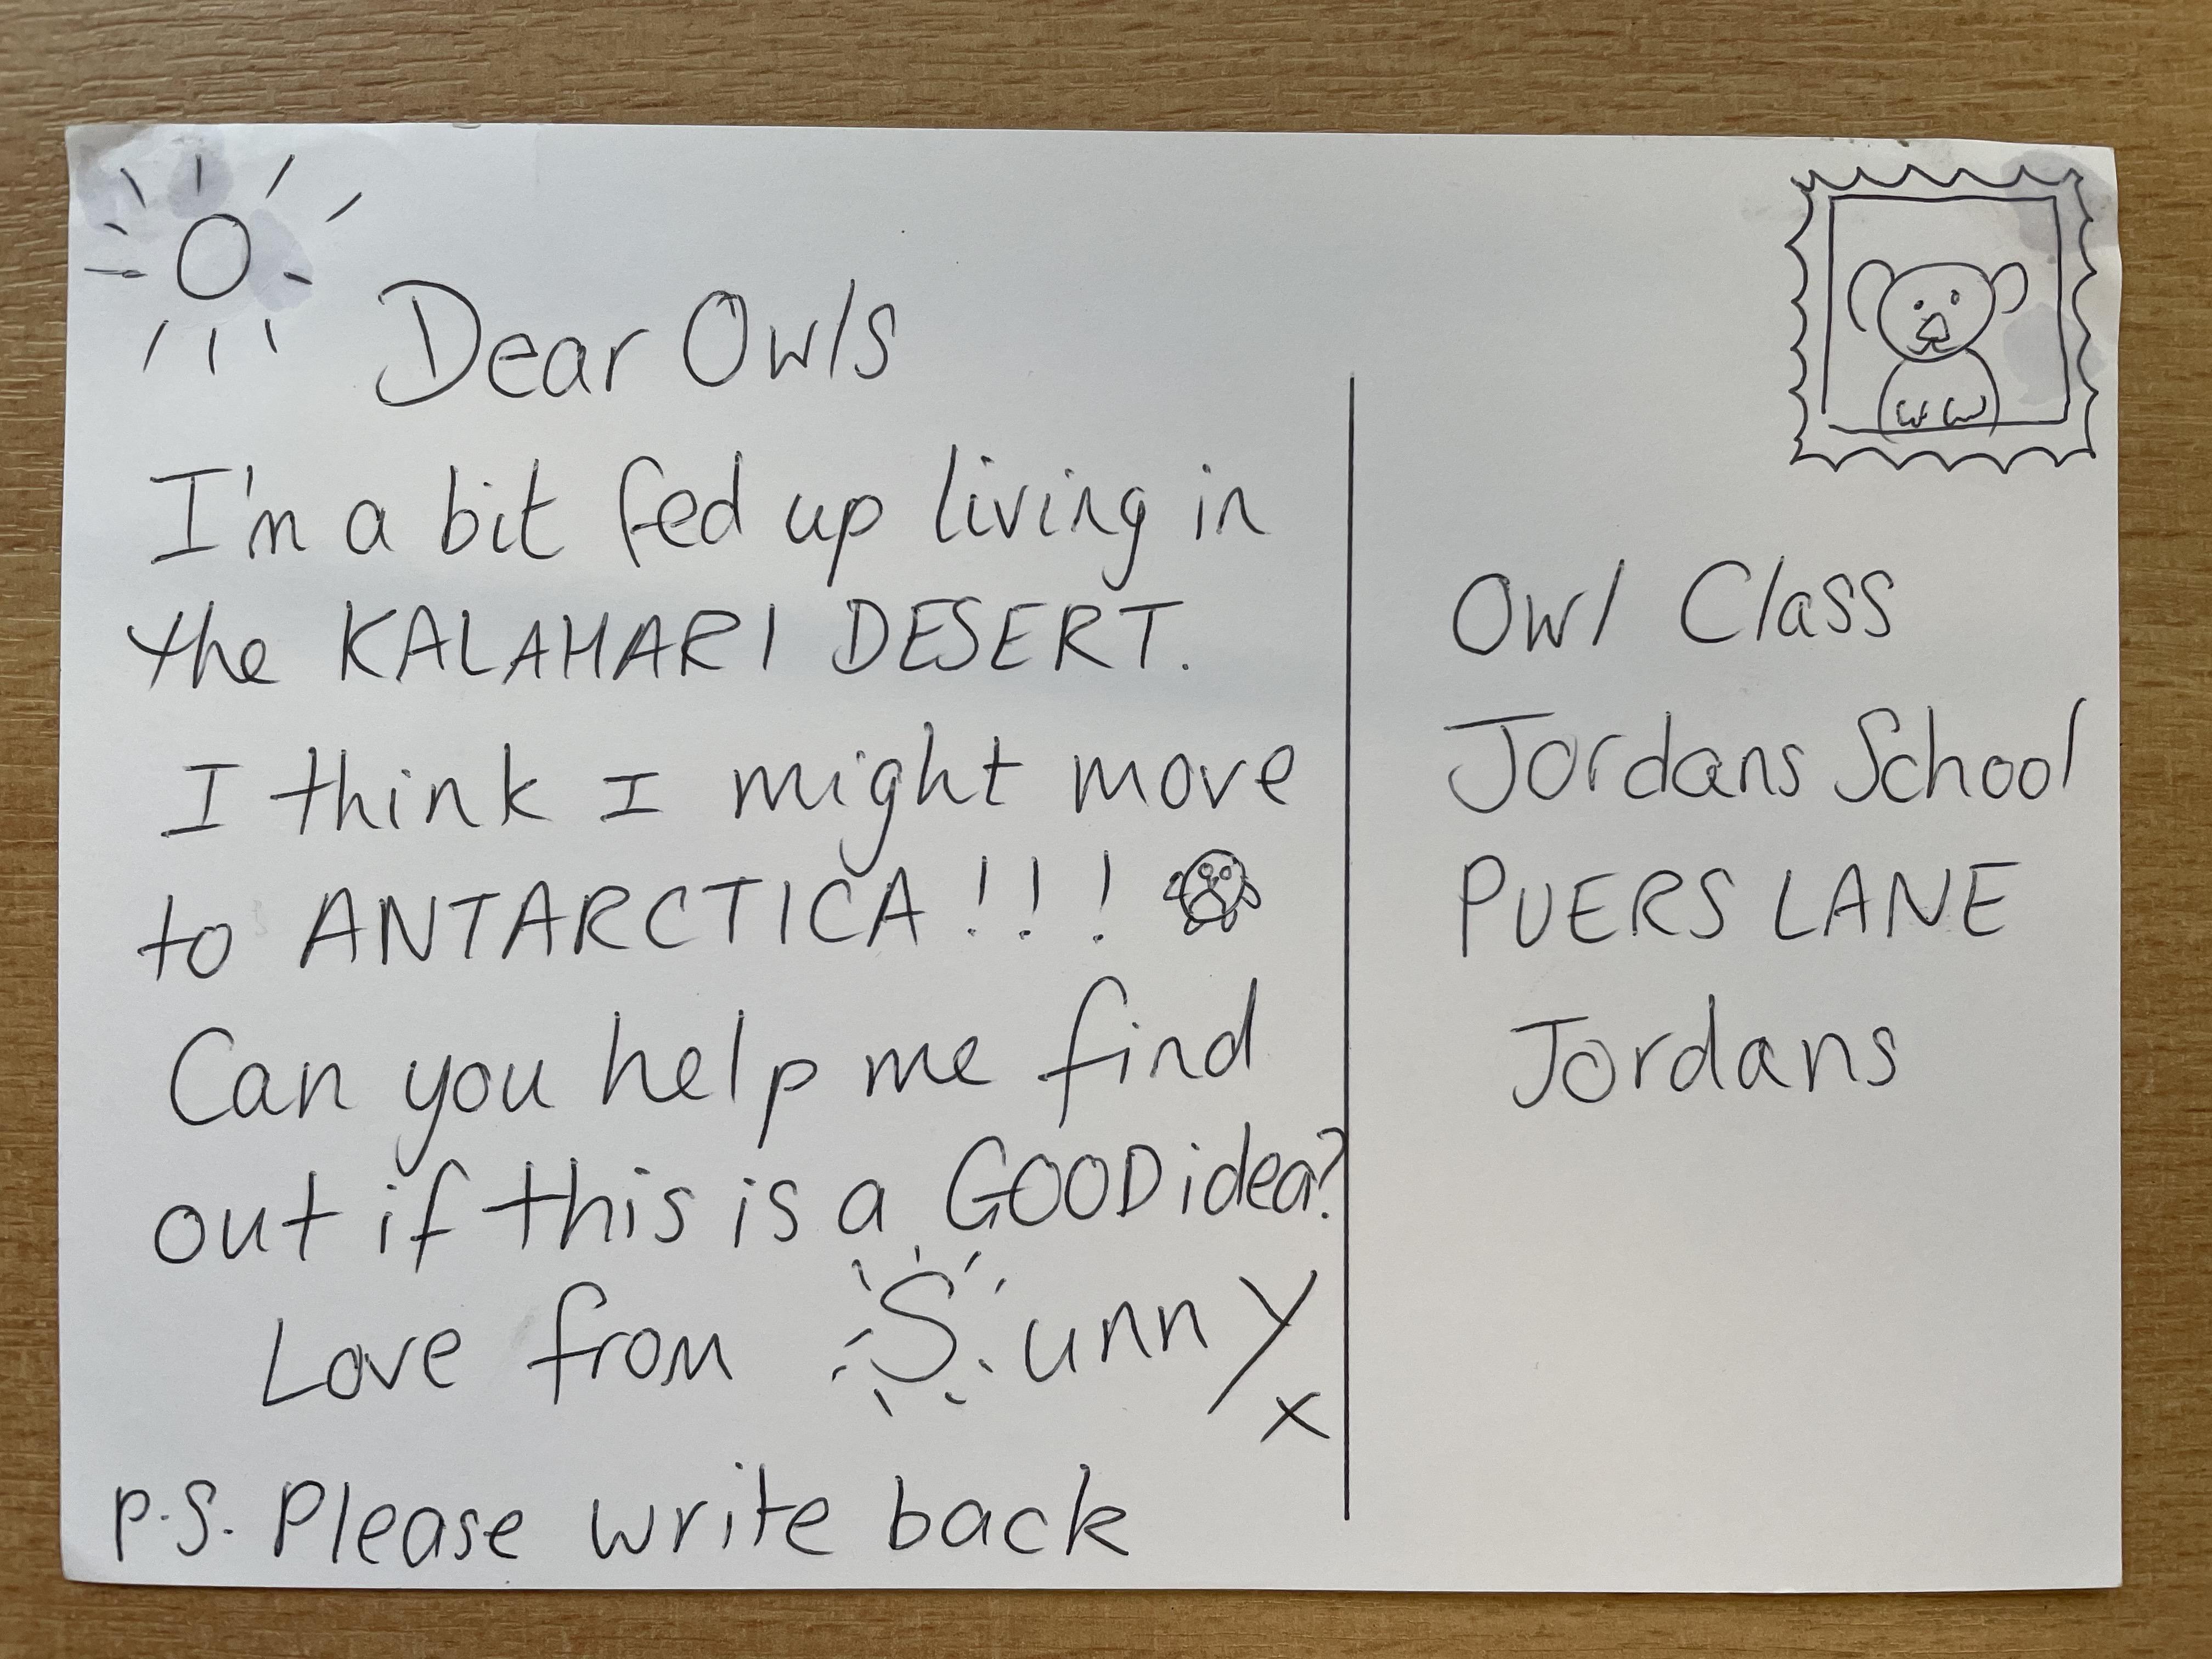 Dear Owls
I'm a bit fed up living in
the KALAHARI DESERT.
I think I might move
to ANTARCTICA!!!
Can you help me find
out if this is a GOOD idea?
Love from Sunny
x
P.S. Please write back
Owl Class
Jordans School
PUERS LANE
Jordans